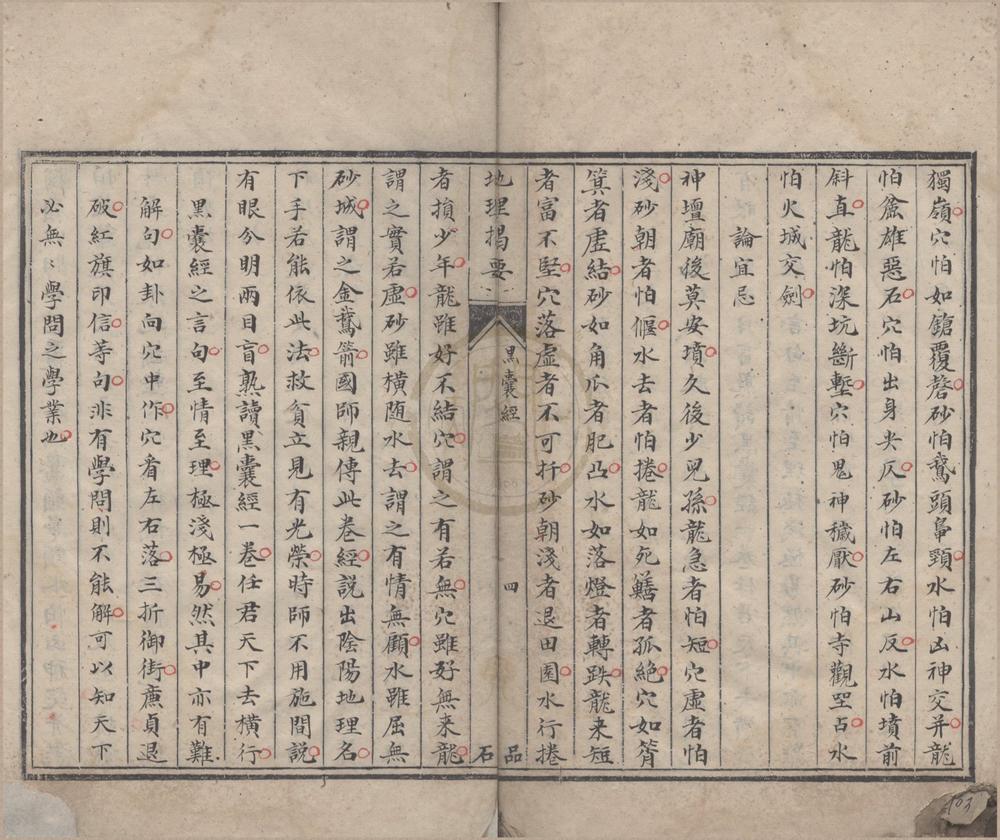 獨嶺穴怕如鎗覆磬砂怕鵞頭鼻頸水怕凶神交并龍
怕雄惡石穴怕出身尖仄砂怕左右山反水怕墳前
斜直龍怕深坑斷塹穴怕鬼神穢厭砂怕寺觀罡占水
怕火城交劍
論宜忌
神壇廟後莫安墳久後少兒孫龍急者怕短穴虛者怕
淺砂朝者怕偃水去者怕捲龍如死鱔者孤絕穴如筲
箕者虛結砂如角爪者肥凸水如落燈者轉跌龍来短
者富不堅穴落虛者不可扦砂朝淺者退田園水行捲
品
黑囊經
四
地理揭要
石
者損少年龍雖好不結穴謂之有若無穴雖好無来龍
謂之實若虛砂雖橫随水去謂之有情無顧水雖屈無
砂城謂之金鵞箭國師親傳此卷經説出陰陽地理名
下手若能依此法救貧立見有光榮時師不用施間説
有眼分明兩目盲熟讀黑囊經一卷任君天下去橫行
黑囊經之言句至情至理極淺極易然其中亦有難
解句如卦向穴中作穴看左右落三折御街廉貞退
破紅旗印信等句非有學問則不能解可以知天下
必無〻學問之學業也
103